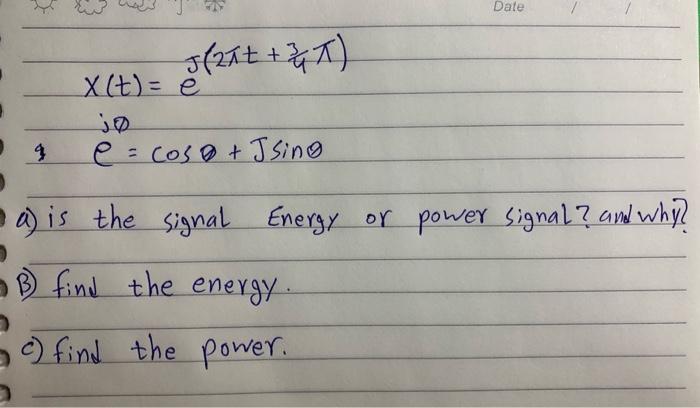 Date / /
X(t) = e^J(2πt + 3/4 π)
& e^jθ = cosθ + J sinθ
a) is the signal Energy or power signal? and why?
B) find the energy.
c) find the power.